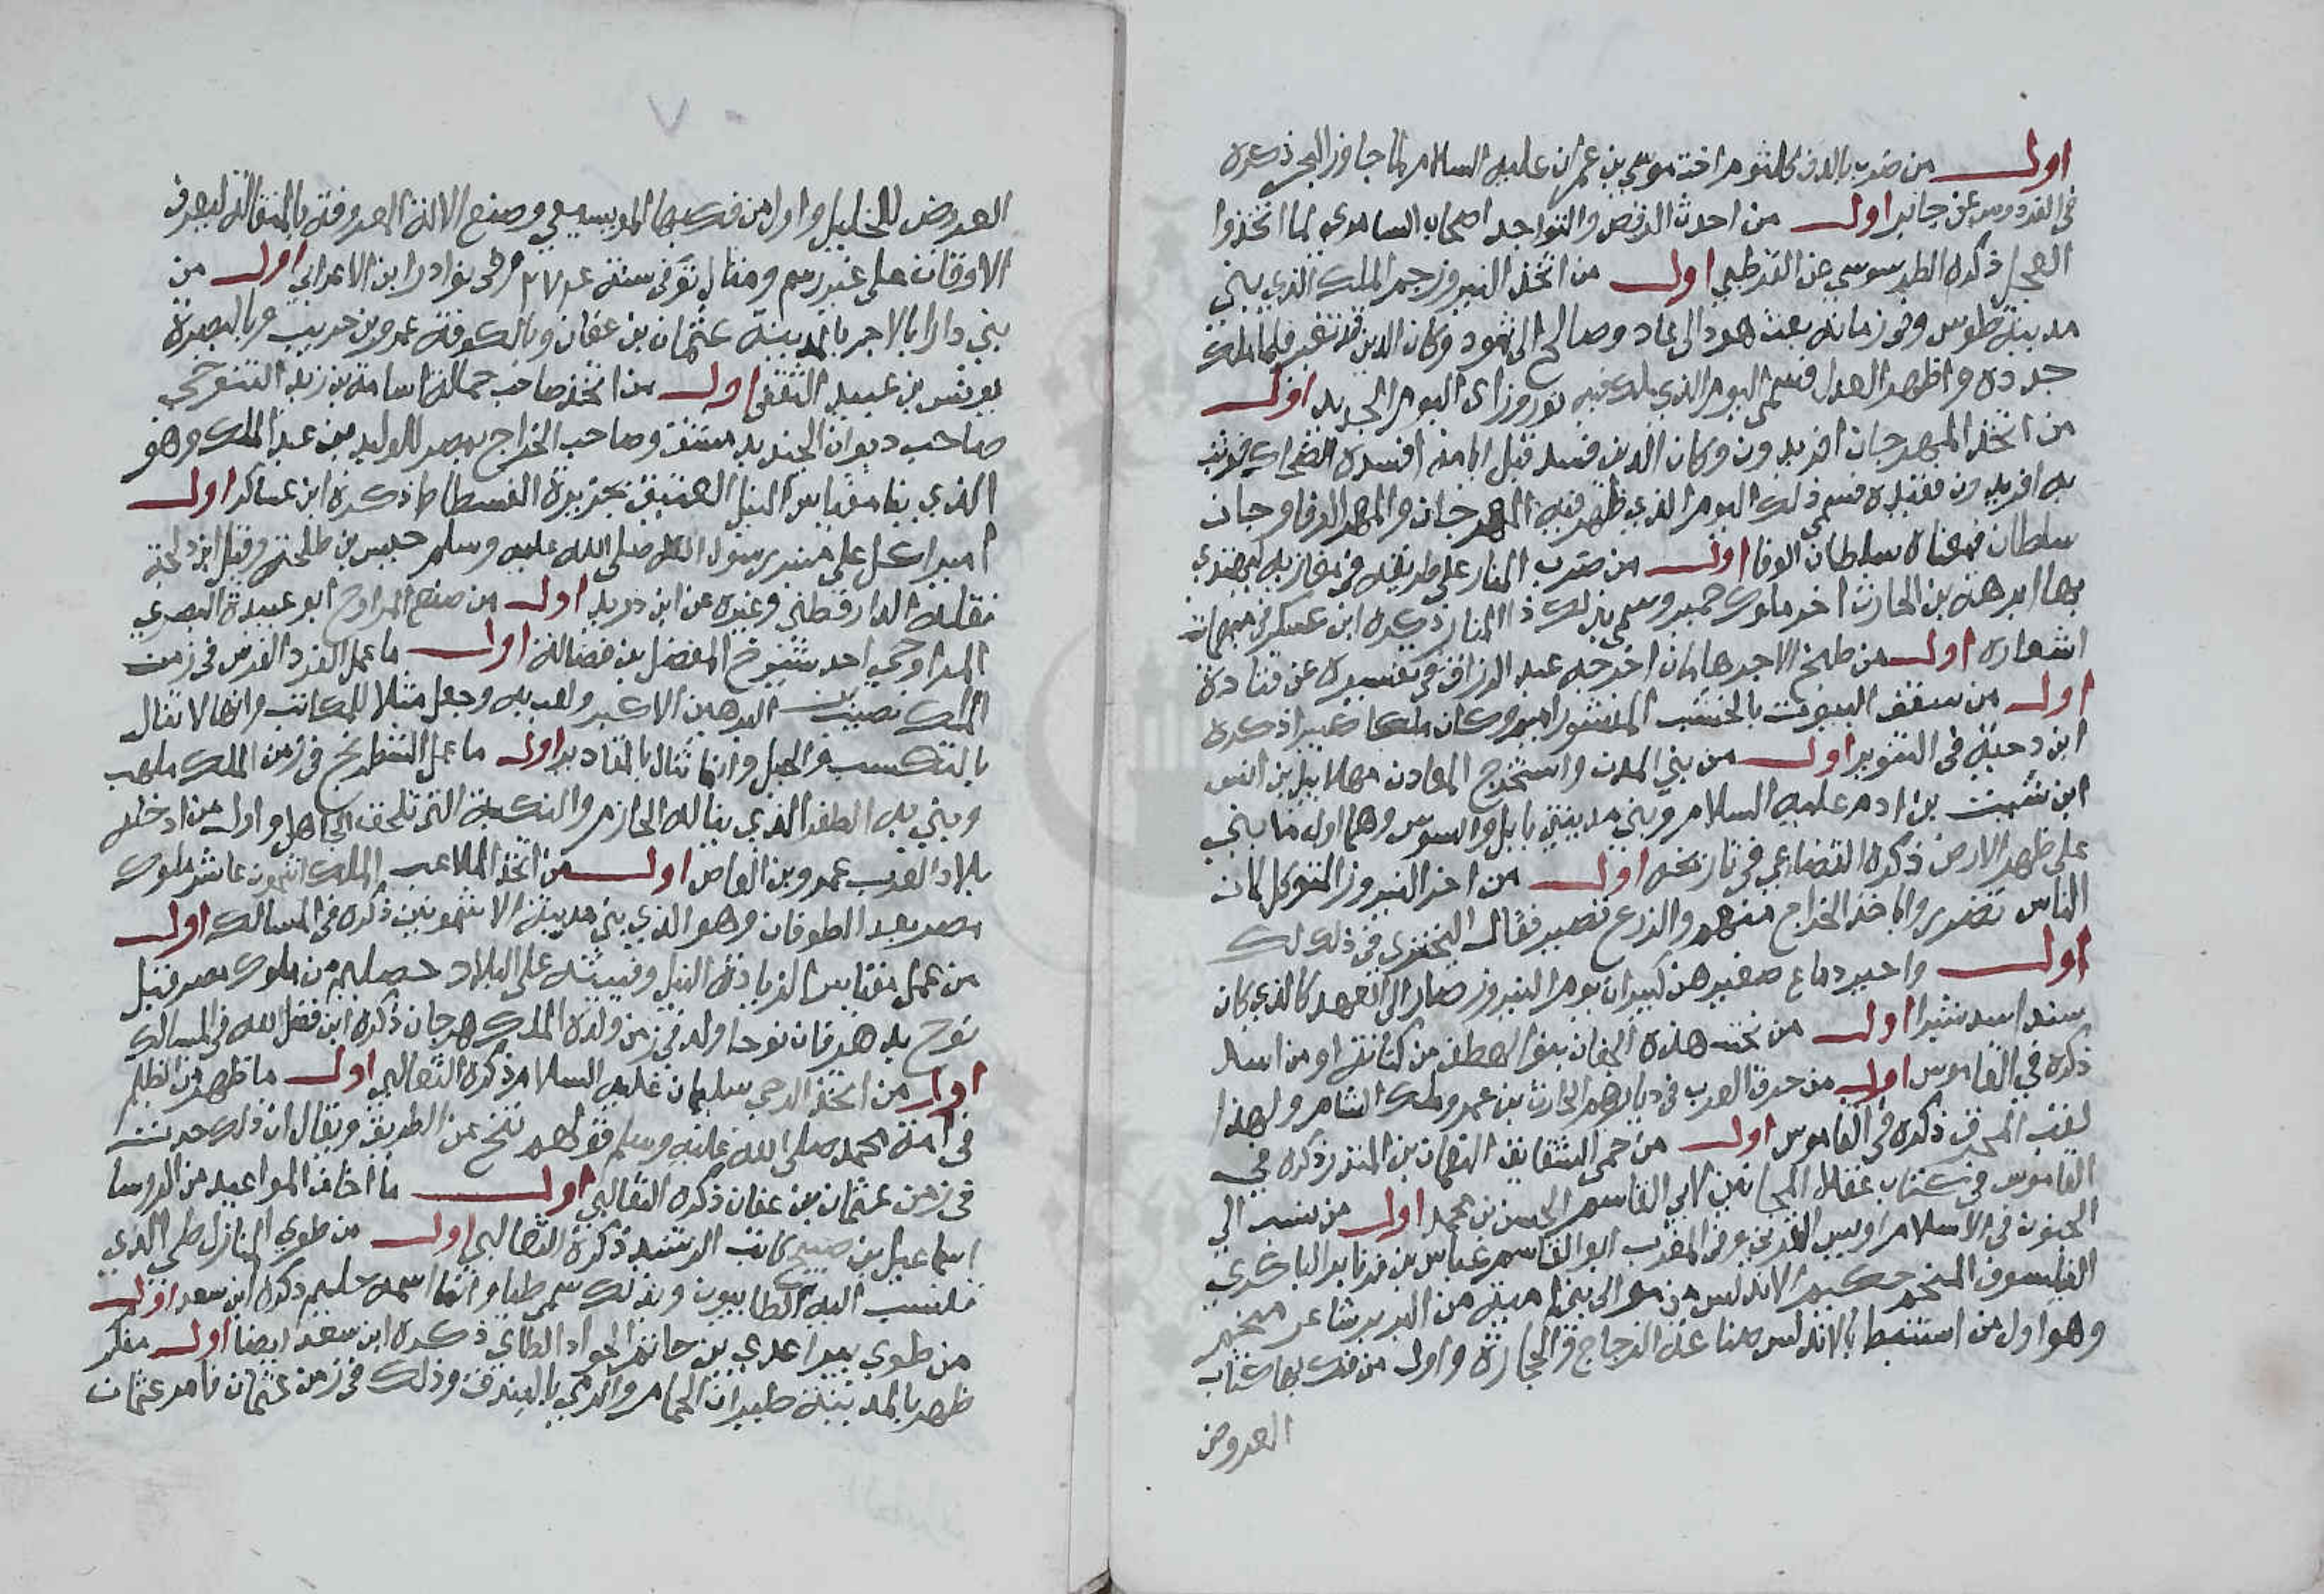 اول من ضرب بالدف كلثوم اخت موسي بن عمران عليه السلام لما جاوز البحر ذكره
في الفردوس عن جابر اول من احدث الرقص والتواجد اصحاب السامري لما اتخذوا
العجل ذكره الطرسوسي عن القرطبي اول من اتخذ النيروز جمر الملك الذي بني
مدينة طوس وفي زمانه بعث هود الى عاد وصالح الى ثمود وكان الدين قد تغير فلما ملك
جدده واظهر العدل فسمي اليوم الذي ملك فيه نوروز اي اليوم الجديد اول
من اتخذ المهرجان افريدون وكان الدين فسد قبل ايامه افسده الضحاك فوثب
به افريدون فقتله فسمي ذلك اليوم الذي ظفر فيه المهرجان والمهر الوفا وجان
سلطان فمعناه سلطان الوفا اول من ضرب المنار على طريقه في مغازيه ليهتدي
بها ابرهة بن الحارث احد ملوك حمير وسمي بذلك ذا المنار ذكره ابن عسكر في مبهمات
اشعاره اول من طبخ الاجر هامان اخرجه عبد الرزاق في تفسيره عن قتادة
اول من سقف البيوت بالخشب المنشور وكان ملكا ذكره
ابن دحية في التنوير اول من بني المدن واستخرج المعادن مهلاييل بن انوس
ابن شيث بن ادم عليه السلام وبني مدينتي بابل والسوس وهما اول ما بني
على ظهر الارض ذكره القضاعي في تاريخه اول من اخر النيروز المتوكل كان
الناس تضرروا باخذ الخراج منهم والزرع فقال البحتري في ذلك لك
اول ان يوم النيروز صار الى العهد كالذي كان
سنه ازدشير اول من نحت هذه الجفان بنو الحطف من كنانة او من اسد
ذكره في القاموس اول من حرق العرب في ديارهم الحارث بن عمرو ملك الشام ولهذا
لقب المحرق ذكره في القاموس اول من حمى الشقايق النعمان بن المنذر ذكره في
القاموس في كتاب عقلاء المجانين لابي القاسم الحسن بن محمد اول من نسب الي
الجنون في الاسلام اويس القرني وفي المغرب ابو القاسم عباس بن فرناس
الفيلسوف المنجم حكيم الاندلس من موالى بني امية من البربر شاعر منجم
وهو اول من استنبط بالاندلس صناعة الزجاج من الحجارة واول من فك بها كتاب
العروض
العروض للخليل واول من فك بها الموسيقي وصنع الالة المعروفة بالمنقالة ليعرف
الاوقات على غير رسم ومثال توفي سنة ٢٧٤ وفي نوادر ابن الاعرابي اول من
بني دارا بالاجر بالمدينة عثمان بن عفان وبالكوفة عمرو بن حريب وبالبصرة
يونس بن عبيد الثقفي اول من اتخذ صاحب حمالة اسامة بن زيد التنوخي
صاحب ديوان الجند بدمشق وصاحب الخراج بمصر للوليد بن عبد الملك وهو
الذي بنا مقياس النيل العتيق بجزيرة الفسطاط ذكره ابن عساكر اول
امير اكل على منبر رسول الله صلى الله عليه وسلم حبيس بن طلحة وقيل ابن دلجة
نقله الدارقطني وغيره عن ابن دريد اول من صنع المراوح ابو عبيدة البصري
المراوحي احد شيوخ المفضل بن فضالة اول ما عمل النرد الفرس في زمن
الملك نصيبن البرهمن الاكبر ولعب به وجعل مثلا للمكاسب وانها لا تنال
بالتكسب والحيل وانما تنال بالمقادير اول ما عمل الشطرنج في زمن الملك ملهب
وبني به الظفر الذي يناله الحازم والنكبة التي تلحق الجاهل واول من ادخله
بلاد العرب عمرو بن العاص اول من اتخذ الملاعب الملك اشمون عاشر ملوك
مصر بعد الطوفان وهو الذي بني مدينة الاشمونين ذكره في المسالك اول
من عمل مقياسا لزيادة النيل وقسمته على البلاد حصليم من ملوك مصر قبل
نوح فان نوحا ولد في زمن ولده الملك هرجان ذكره ابن فضل الله في المسالك
اول من اتخذ الرحى سليمان عليه السلام ذكره الثعالبي اول ما ظهر من الظلم
في امة محمد صلى الله عليه وسلم قولهم تنح عن الطريق ويقال ان ذلك حدث
في زمن عثمان بن عفان ذكره الثعالبي اول ما اخلف المواعيد من الروسا
اسماعيل بن صبيح كاتب الرشيد ذكره الثعالبي اول من طوي المنازل طي الذي
فلنسب اليه الطاييون وبذلك سمي طيا وانما اسمه جلهم ذكره ابن سعد اول
من طوي بيرا عدي بن حاتم الجواد الطاي ذكره ابن سعد ايضا اول منكر
ظهر بالمدينة طيران الحمام والرمي بالبندق وذلك في زمن عثمان فامر عثمان